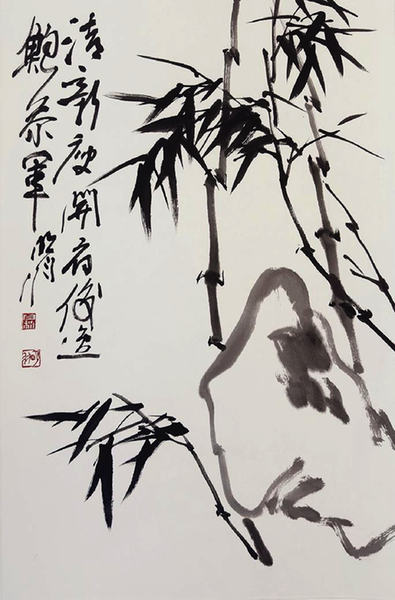 清新庾開府俊逸
鮑參軍